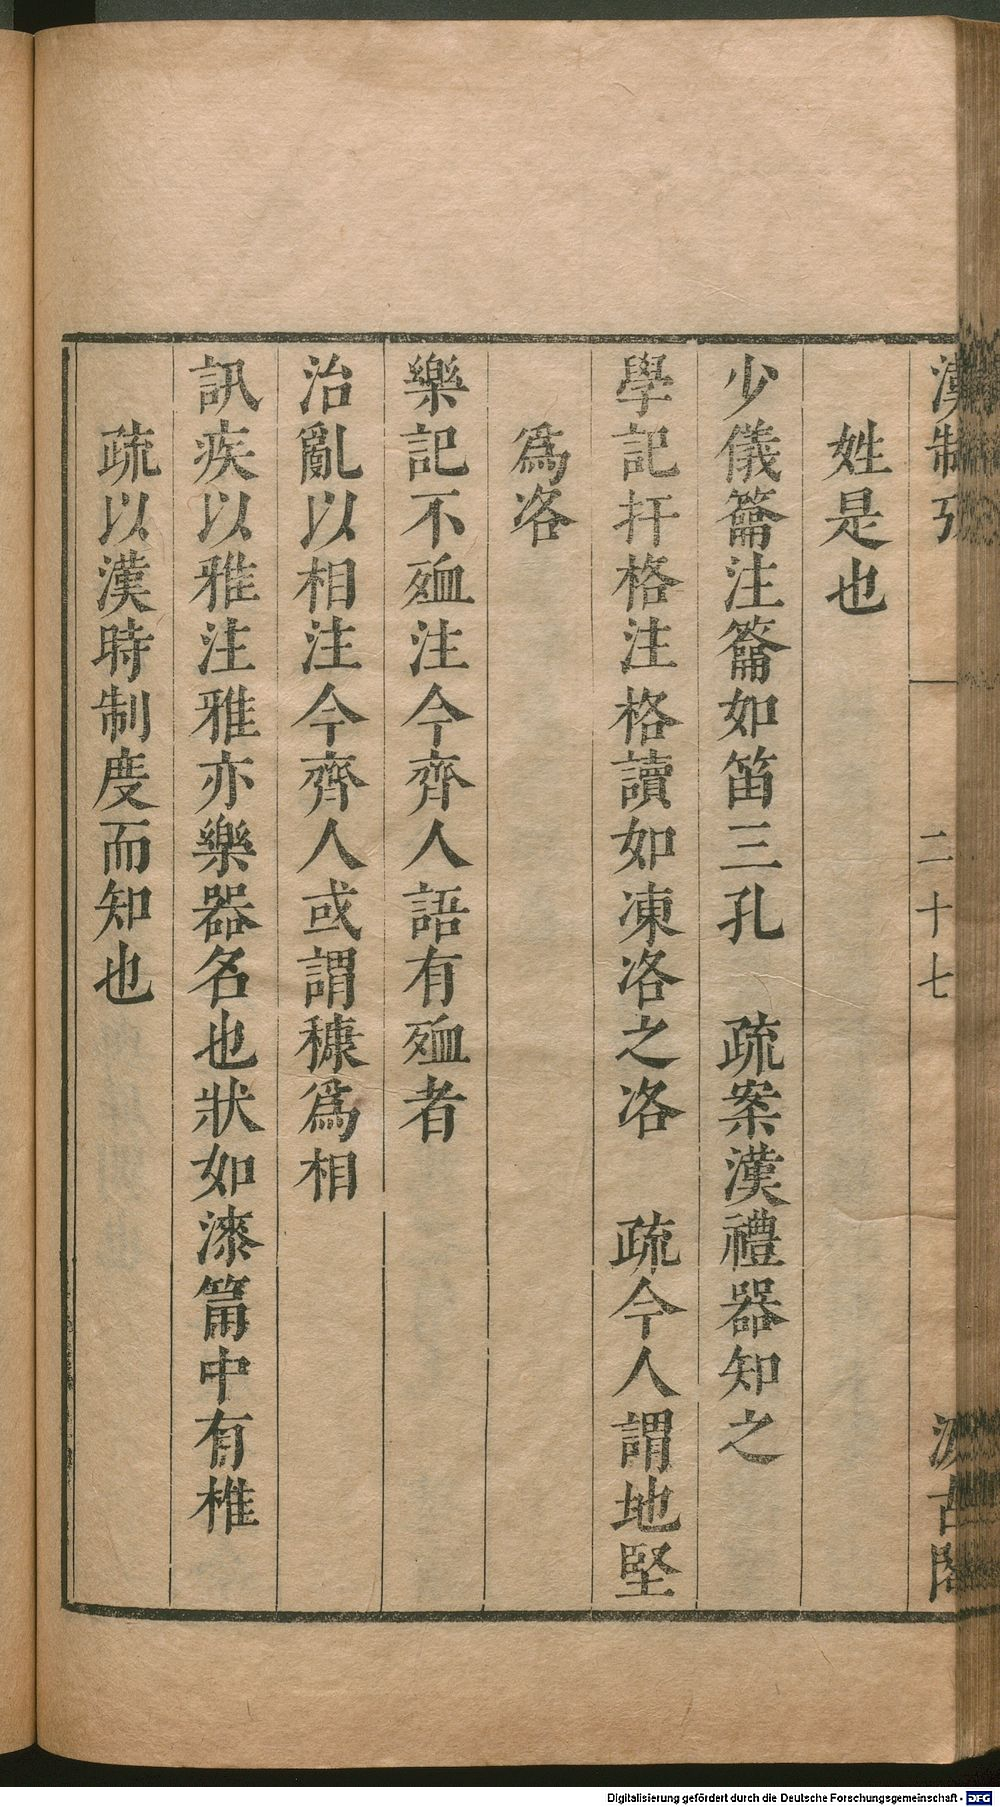 漢制攷
二十七
汲古閣
姓是也
少儀籥注籥如笛三孔　疏案漢禮器知之
學記扞格注格讀如凍洛之洛　疏今人謂地堅
爲洛
樂記不殈注今齊人語有殈者
治亂以相注今齊人或謂穅爲相
訊疾以雅注雅亦樂器名也狀如漆筩中有椎
疏以漢時制度而知也
Digitalisierung gefördert durch die Deutsche Forschungsgemeinschaft - DFG